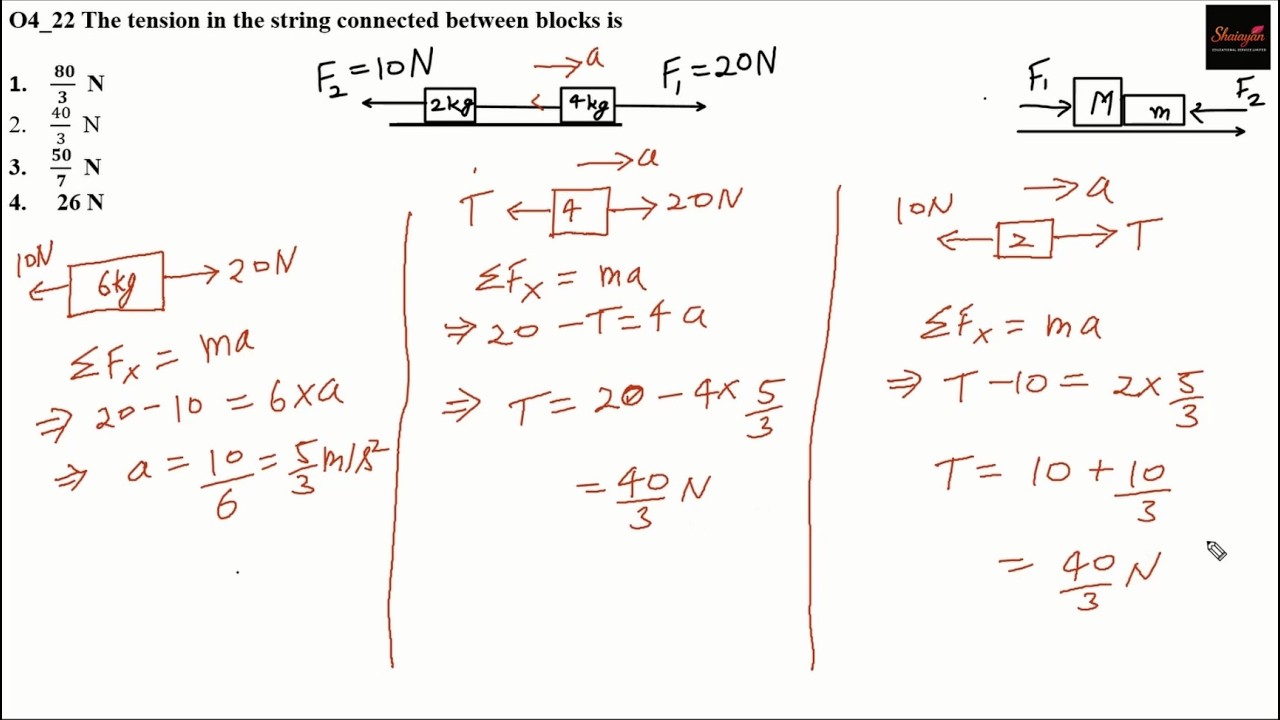 O4_22 The tension in the string connected between blocks is
1. 80/3 N
2. 40/3 N
3. 50/7 N
4. 26 N
F₂ = 10N
2kg
4kg
→ a
F₁ = 20N
F₁
M
m
F₂
Shaiayan
EDUCATIONAL SERVICE LIMITED
10N
6kg
20N
ΣFₓ = ma
⇒ 20 - 10 = 6 × a
⇒ a = 10/6 = 5/3 m/s²
→ a
T
4
20N
ΣFₓ = ma
⇒ 20 - T = 4 a
⇒ T = 20 - 4 × 5/3
= 40/3 N
→ a
10N
2
T
ΣFₓ = ma
⇒ T - 10 = 2 × 5/3
T = 10 + 10/3
= 40/3 N